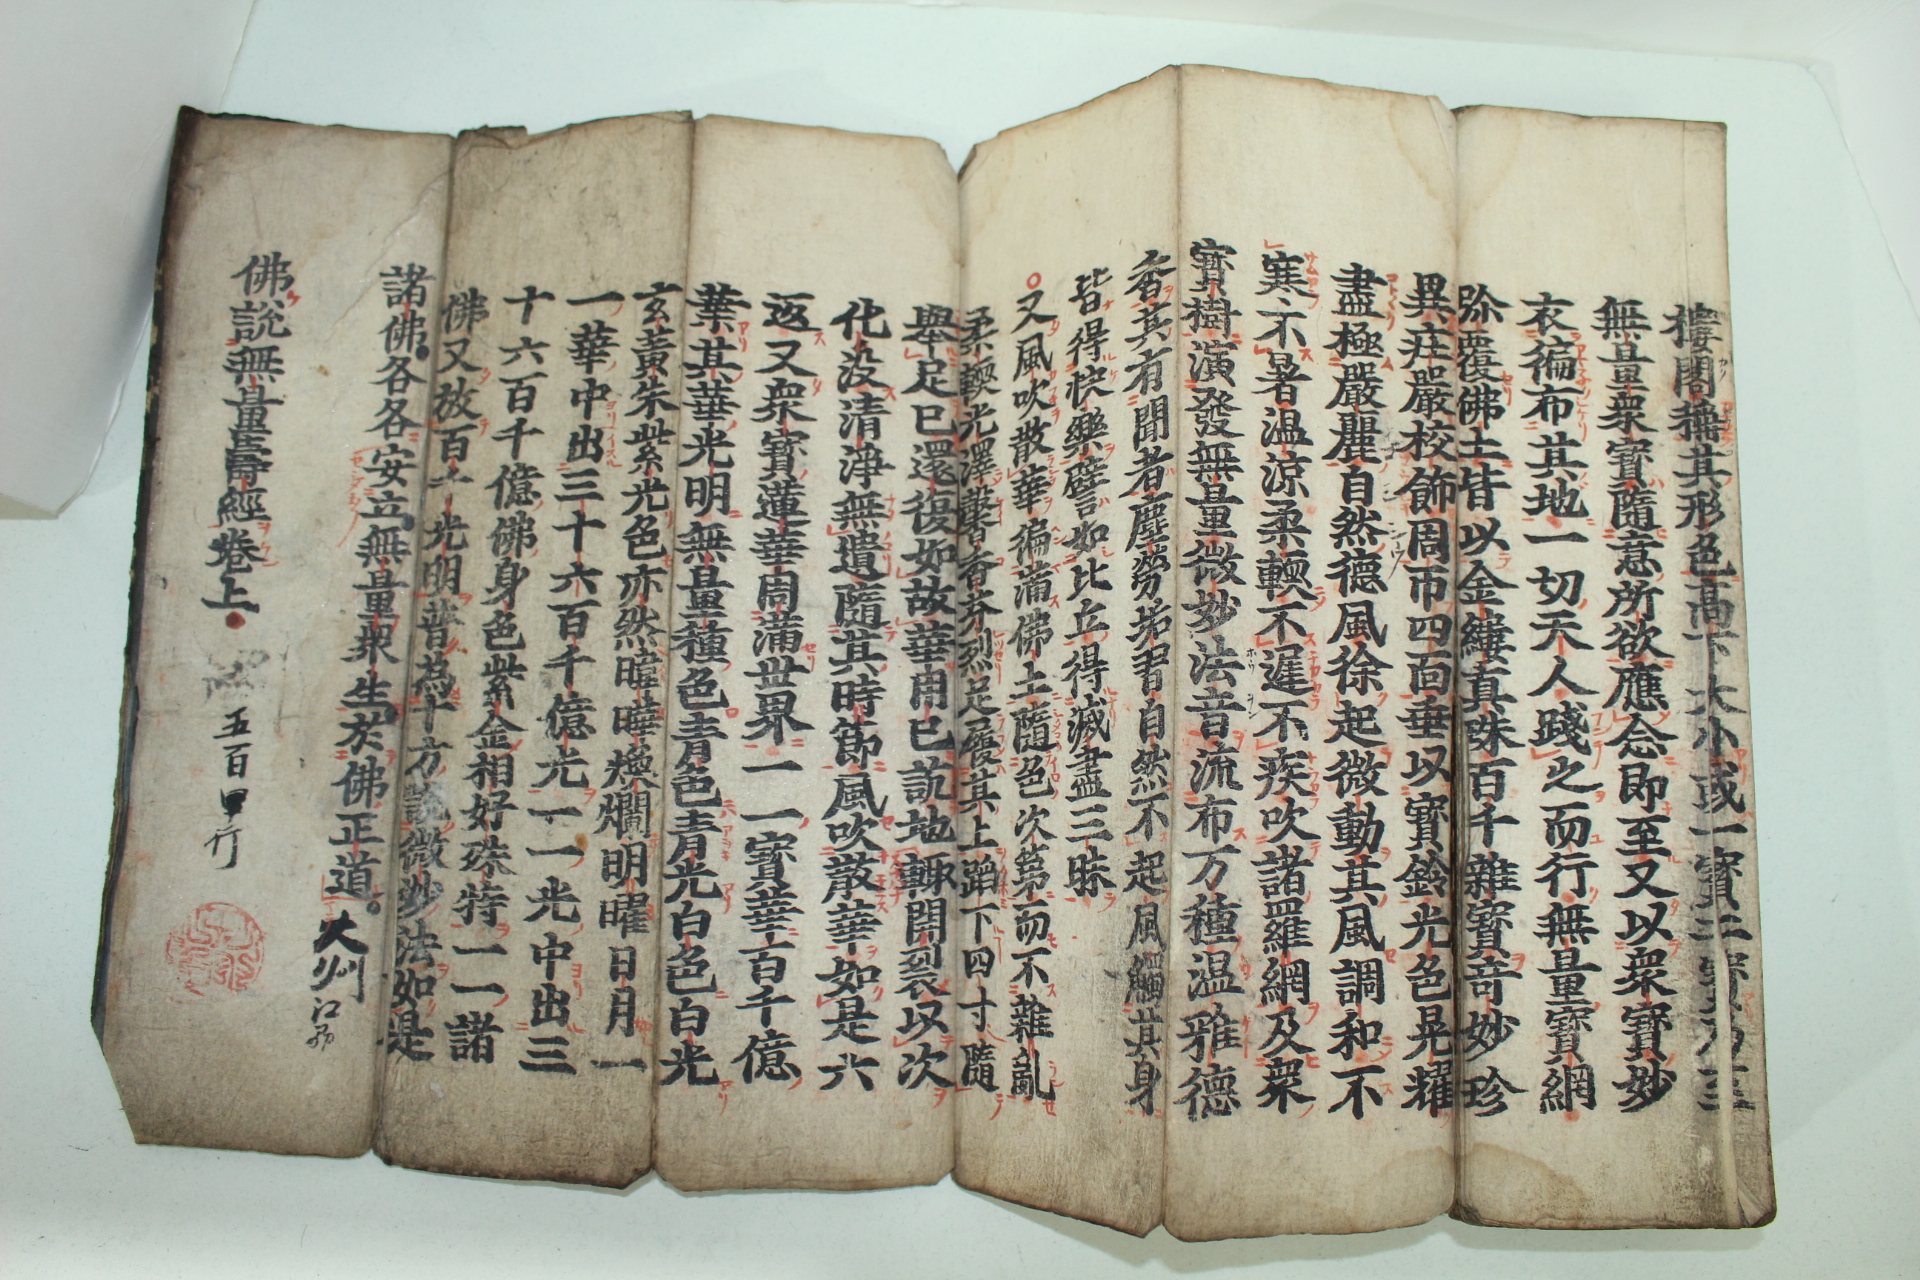 樓閣稱其形色高下大小或一寶二寶乃至
無量衆寶隨意所欲應念即至又以衆寶妙
衣徧布其地一切天人踐之而行無量寶網
弥覆佛土皆以金縷真珠百千雜寶竒妙珍
異莊嚴校飾周帀四面垂以寶鈴光色晃耀
盡極嚴麗自然德風徐起微動其風調和不
寒不暑温涼柔輭不遲不疾吹諸羅網及衆
寳樹演發無量微妙法音流布万種温雅德
香其有聞者塵勞垢習自然不起風觸其身
皆得快樂譬如比丘得滅盡三昧
又風吹散華徧滿佛土隨色次第而不雜亂
柔輭光澤馨香芬烈足履其上蹈下四寸隨
舉足已還復如故華用已訖地輙開裂以次
化没清淨無遺隨其時節風吹散華如是六
返又衆寶蓮華周滿世界一一寶華百千億
葉其華光明無量種色青色青光白色白光
玄黃朱紫光色亦然暐曄煥爛明曜日月一
一華中出三十六百千億光一一光中出三
十六百千億佛身色紫金相好殊特一一諸
佛又放百千光明普為十方說微妙法如是
諸佛各各安立無量衆生於佛正道
大州
佛說無量壽經卷上
五百
行